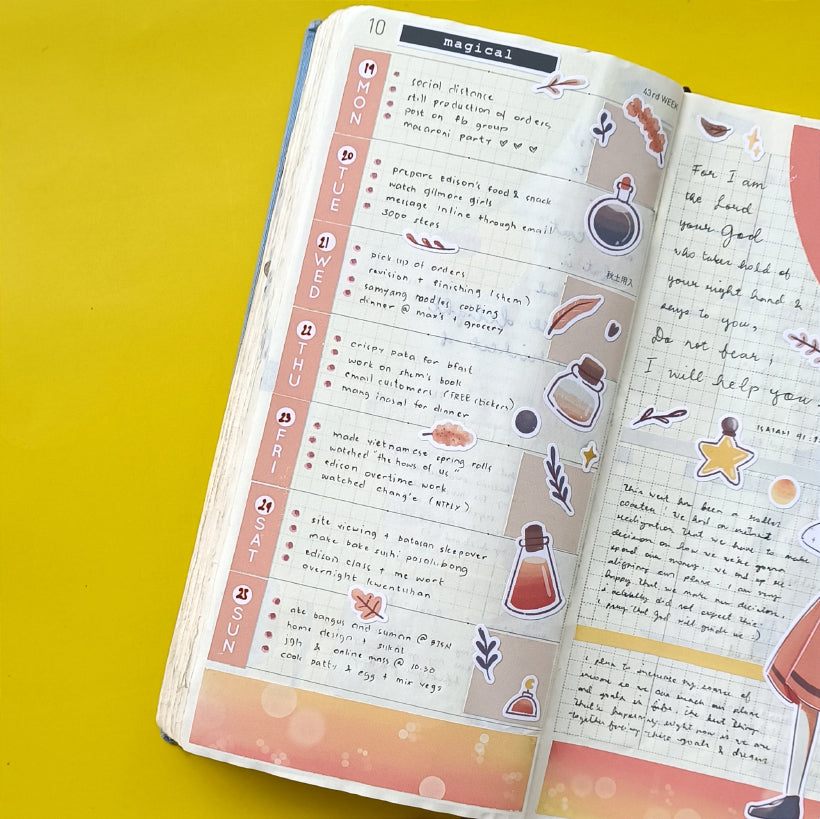 10
magical
43rd WEEK
19
MON
social distance
still production of orders
post on fb group
macaroni party ♡ ♡ ♡
20
TUE
prepare edison's food & snack
watch gilmore girls
message inline through email
3000 steps
21
WED
秋土用入
pick up of orders
revision + finishing (shem)
samyang noodles cooking
dinner @ max's + grocery
22
THU
crispy pata for bfast
work on shem's book
email customers (FREE stickers)
mang inasal for dinner
23
FRI
made vietnamese spring rolls
watched "the hows of us"
edison overtime work
watched chang'e (NTFLX)
24
SAT
site viewing + batasan sleepover
make bake sushi pasalubong
edison class + me work
overnight kwentuhan
25
SUN
ate bangus and suman @
home design +
& online mass @ 10:30
cook patty & egg + mix vegs
For I am
the Lord
your God
who takes hold of
your right hand &
says to you,
Do not fear;
I will help you.
ISAIAH 41:
This week has been a roller
coaster! We had an
realization that we have to make
decision on how we're gonna
spend our money. we end up
aligning our plans. i am very
happy that we make new decisions.
i actually did not expect this.
i pray that God will guide us :)
i plan to increase my source of
income so we can reach our plans
and goals in life. the best thing
that's happening right now is we are
together facing these goals & dreams